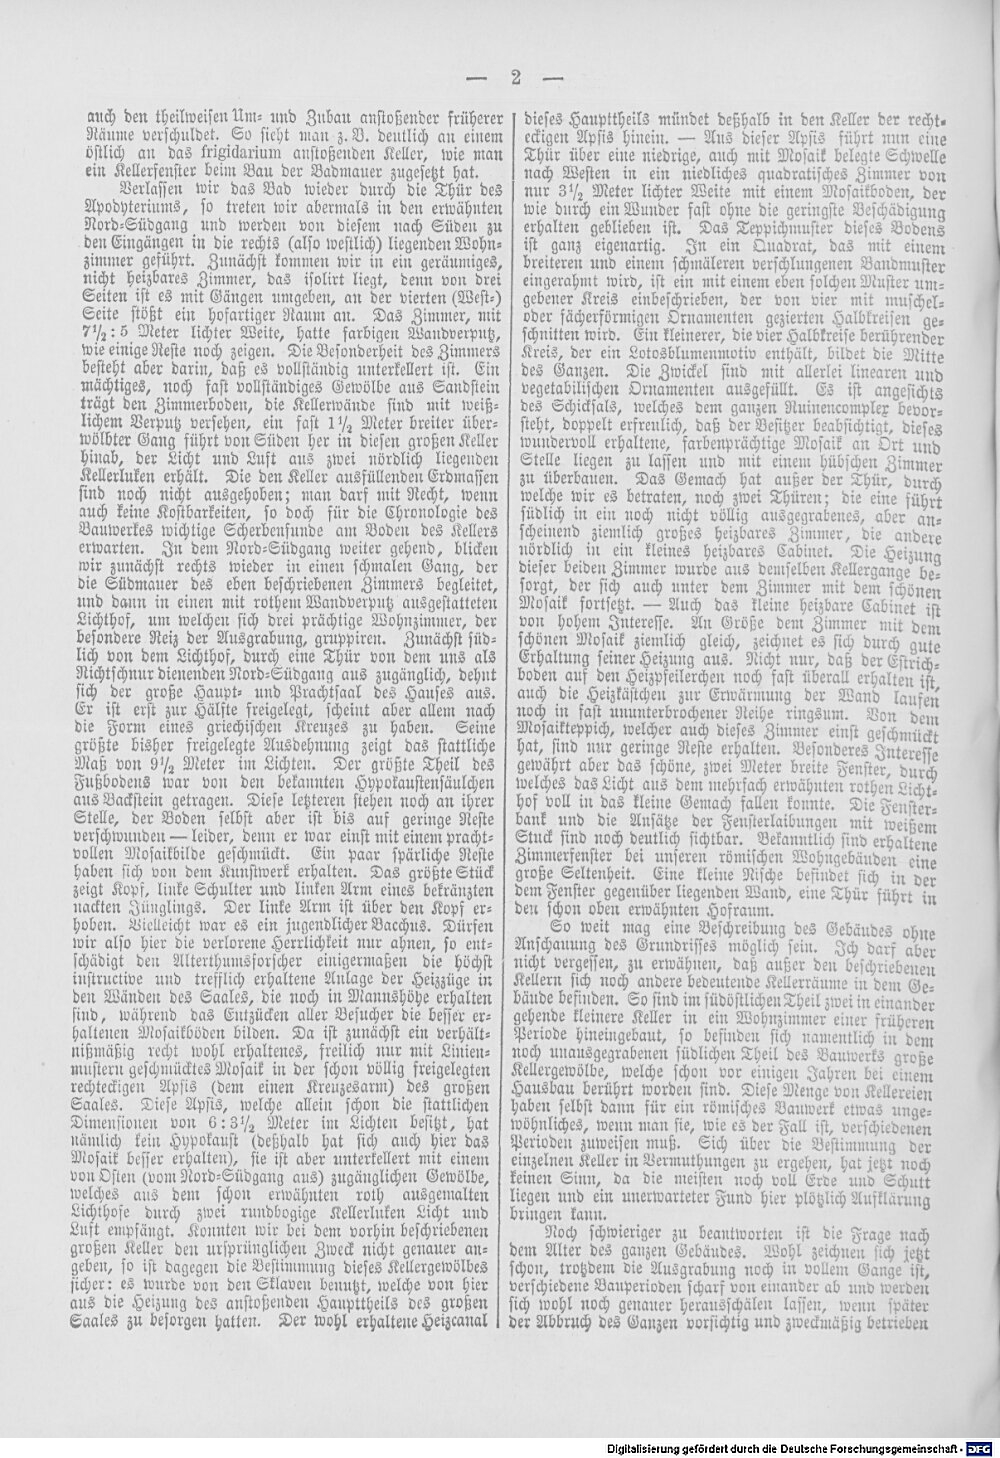 — 2 —
auch den theilweisen Um- und Zubau anstoßender früherer
Räume verschuldet. So sieht man z. B. deutlich an einem
östlich an das frigidarium anstoßenden Keller, wie man
ein Kellerfenster beim Bau der Badmauer zugesetzt hat.
Verlassen wir das Bad wieder durch die Thür des
Apodyteriums, so treten wir abermals in den erwähnten
Nord-Südgang und werden von diesem nach Süden zu
den Eingängen in die rechts (also westlich) liegenden Wohn-
zimmer geführt. Zunächst kommen wir in ein geräumiges,
nicht heizbares Zimmer, das isolirt liegt, denn von drei
Seiten ist es mit Gängen umgeben, an der vierten (West-)
Seite stößt ein hofartiger Raum an. Das Zimmer, mit
7½ : 5 Meter lichter Weite, hatte farbigen Wandverputz,
wie einige Reste noch zeigen. Die Besonderheit des Zimmers
besteht aber darin, daß es vollständig unterkellert ist. Ein
mächtiges, noch fast vollständiges Gewölbe aus Sandstein
trägt den Zimmerboden, die Kellerwände sind mit weiß-
lichem Verputz versehen, ein fast 1½ Meter breiter über-
wölbter Gang führt von Süden her in diesen großen Keller
hinab, der Licht und Luft aus zwei nördlich liegenden
Kellerluken erhält. Die den Keller ausfüllenden Erdmassen
sind noch nicht ausgehoben; man darf mit Recht, wenn
auch keine Kostbarkeiten, so doch für die Chronologie des
Bauwerkes wichtige Scherbenfunde am Boden des Kellers
erwarten. In dem Nord-Südgang weiter gehend, blicken
wir zunächst rechts wieder in einen schmalen Gang, der
die Südmauer des eben beschriebenen Zimmers begleitet,
und dann in einen mit rothem Wandverputz ausgestatteten
Lichthof, um welchen sich drei prächtige Wohnzimmer, der
besondere Reiz der Ausgrabung, gruppiren. Zunächst süd-
lich von dem Lichthof, durch eine Thür von dem uns als
Richtschnur dienenden Nord-Südgang aus zugänglich, dehnt
sich der große Haupt- und Prachtsaal des Hauses aus.
Er ist erst zur Hälfte freigelegt, scheint aber allem nach
die Form eines griechischen Kreuzes zu haben. Seine
größte bisher freigelegte Ausdehnung zeigt das stattliche
Maß von 9½ Meter im Lichten. Der größte Theil des
Fußbodens war von den bekannten Hypokaustensäulchen
aus Backstein getragen. Diese letzteren stehen noch an ihrer
Stelle, der Boden selbst aber ist bis auf geringe Reste
verschwunden — leider, denn er war einst mit einem pracht-
vollen Mosaikbilde geschmückt. Ein paar spärliche Reste
haben sich von dem Kunstwerk erhalten. Das größte Stück
zeigt Kopf, linke Schulter und linken Arm eines bekränzten
nackten Jünglings. Der linke Arm ist über den Kopf er-
hoben. Vielleicht war es ein jugendlicher Bacchus. Dürfen
wir also hier die verlorene Herrlichkeit nur ahnen, so ent-
schädigt den Alterthumsforscher einigermaßen die höchst
instructive und trefflich erhaltene Anlage der Heizzüge in
den Wänden des Saales, die noch in Mannshöhe erhalten
sind, während das Entzücken aller Besucher die besser er-
haltenen Mosaikböden bilden. Da ist zunächst ein verhält-
nißmäßig recht wohl erhaltenes, freilich nur mit Linien-
mustern geschmücktes Mosaik in der schon völlig freigelegten
rechteckigen Apsis (dem einen Kreuzesarm) des großen
Saales. Diese Apsis, welche allein schon die stattlichen
Dimensionen von 6 : 3½ Meter im Lichten besitzt, hat
nämlich kein Hypokaust (deßhalb hat sich auch hier das
Mosaik besser erhalten), sie ist aber unterkellert mit einem
von Osten (vom Nord-Südgang aus) zugänglichen Gewölbe,
welches aus dem schon erwähnten roth ausgemalten
Lichthofe durch zwei rundbogige Kellerluken Licht und
Luft empfängt. Konnten wir bei dem vorhin beschriebenen
großen Keller den ursprünglichen Zweck nicht genauer an-
geben, so ist dagegen die Bestimmung dieses Kellergewölbes
sicher: es wurde von den Sklaven benutzt, welche von hier
aus die Heizung des anstoßenden Haupttheils des großen
Saales zu besorgen hatten. Der wohl erhaltene Heizcanal
dieses Haupttheils mündet deßhalb in den Keller der recht-
eckigen Apsis hinein. — Aus dieser Apsis führt nun eine
Thür über eine niedrige, auch mit Mosaik belegte Schwelle
nach Westen in ein niedliches quadratisches Zimmer von
nur 3½ Meter lichter Weite mit einem Mosaikboden, der
wie durch ein Wunder fast ohne die geringste Beschädigung
erhalten geblieben ist. Das Teppichmuster dieses Bodens
ist ganz eigenartig. In ein Quadrat, das mit einem
breiteren und einem schmäleren verschlungenen Bandmuster
eingerahmt wird, ist ein mit einem eben solchen Muster um-
gebener Kreis einbeschrieben, der von vier mit muschel-
oder fächerförmigen Ornamenten gezierten Halbkreisen ge-
schnitten wird. Ein kleinerer, die vier Halbkreise berührender
Kreis, der ein Lotosblumenmotiv enthält, bildet die Mitte
des Ganzen. Die Zwickel sind mit allerlei linearen und
vegetabilischen Ornamenten ausgefüllt. Es ist angesichts
des Schicksals, welches dem ganzen Ruinencomplex bevor-
steht, doppelt erfreulich, daß der Besitzer beabsichtigt, dieses
wundervoll erhaltene, farbenprächtige Mosaik an Ort und
Stelle liegen zu lassen und mit einem hübschen Zimmer
zu überbauen. Das Gemach hat außer der Thür, durch
welche wir es betraten, noch zwei Thüren; die eine führt
südlich in ein noch nicht völlig ausgegrabenes, aber an-
scheinend ziemlich großes heizbares Zimmer, die andere
nördlich in ein kleines heizbares Cabinet. Die Heizung
dieser beiden Zimmer wurde aus demselben Kellergange be-
sorgt, der sich auch unter dem Zimmer mit dem schönen
Mosaik fortsetzt. — Auch das kleine heizbare Cabinet ist
von hohem Interesse. An Größe dem Zimmer mit dem
schönen Mosaik ziemlich gleich, zeichnet es sich durch gute
Erhaltung seiner Heizung aus. Nicht nur, daß der Estrich-
boden auf den Heizpfeilerchen noch fast überall erhalten ist,
auch die Heizkästchen zur Erwärmung der Wand laufen
noch in fast ununterbrochener Reihe ringsum. Von dem
Mosaikteppich, welcher auch dieses Zimmer einst geschmückt
hat, sind nur geringe Reste erhalten. Besonderes Interesse
gewährt aber das schöne, zwei Meter breite Fenster, durch
welches das Licht aus dem mehrfach erwähnten rothen Licht-
hof voll in das kleine Gemach fallen konnte. Die Fenster-
bank und die Ansätze der Fensterlaibungen mit weißem
Stuck sind noch deutlich sichtbar. Bekanntlich sind erhaltene
Zimmerfenster bei unseren römischen Wohngebäuden eine
große Seltenheit. Eine kleine Nische befindet sich in der
dem Fenster gegenüber liegenden Wand, eine Thür führt in
den schon oben erwähnten Hofraum.
So weit mag eine Beschreibung des Gebäudes ohne
Anschauung des Grundrisses möglich sein. Ich darf aber
nicht vergessen, zu erwähnen, daß außer den beschriebenen
Kellern sich noch andere bedeutende Kellerräume in dem Ge-
bäude befinden. So sind im südöstlichen Theil zwei in einander
gehende kleinere Keller in ein Wohnzimmer einer früheren
Periode hineingebaut, so befinden sich namentlich in dem
noch unausgegrabenen südlichen Theil des Bauwerks große
Kellergewölbe, welche schon vor einigen Jahren bei einem
Hausbau berührt worden sind. Diese Menge von Kellereien
haben selbst dann für ein römisches Bauwerk etwas unge-
wöhnliches, wenn man sie, wie es der Fall ist, verschiedenen
Perioden zuweisen muß. Sich über die Bestimmung der
einzelnen Keller in Vermuthungen zu ergehen, hat jetzt noch
keinen Sinn, da die meisten noch voll Erde und Schutt
liegen und ein unerwarteter Fund hier plötzlich Aufklärung
bringen kann.
Noch schwieriger zu beantworten ist die Frage nach
dem Alter des ganzen Gebäudes. Wohl zeichnen sich jetzt
schon, trotzdem die Ausgrabung noch in vollem Gange ist,
verschiedene Bauperioden scharf von einander ab und werden
sich wohl noch genauer herausschälen lassen, wenn später
der Abbruch des Ganzen vorsichtig und zweckmäßig betrieben
Digitalisierung gefördert durch die Deutsche Forschungsgemeinschaft - DFG